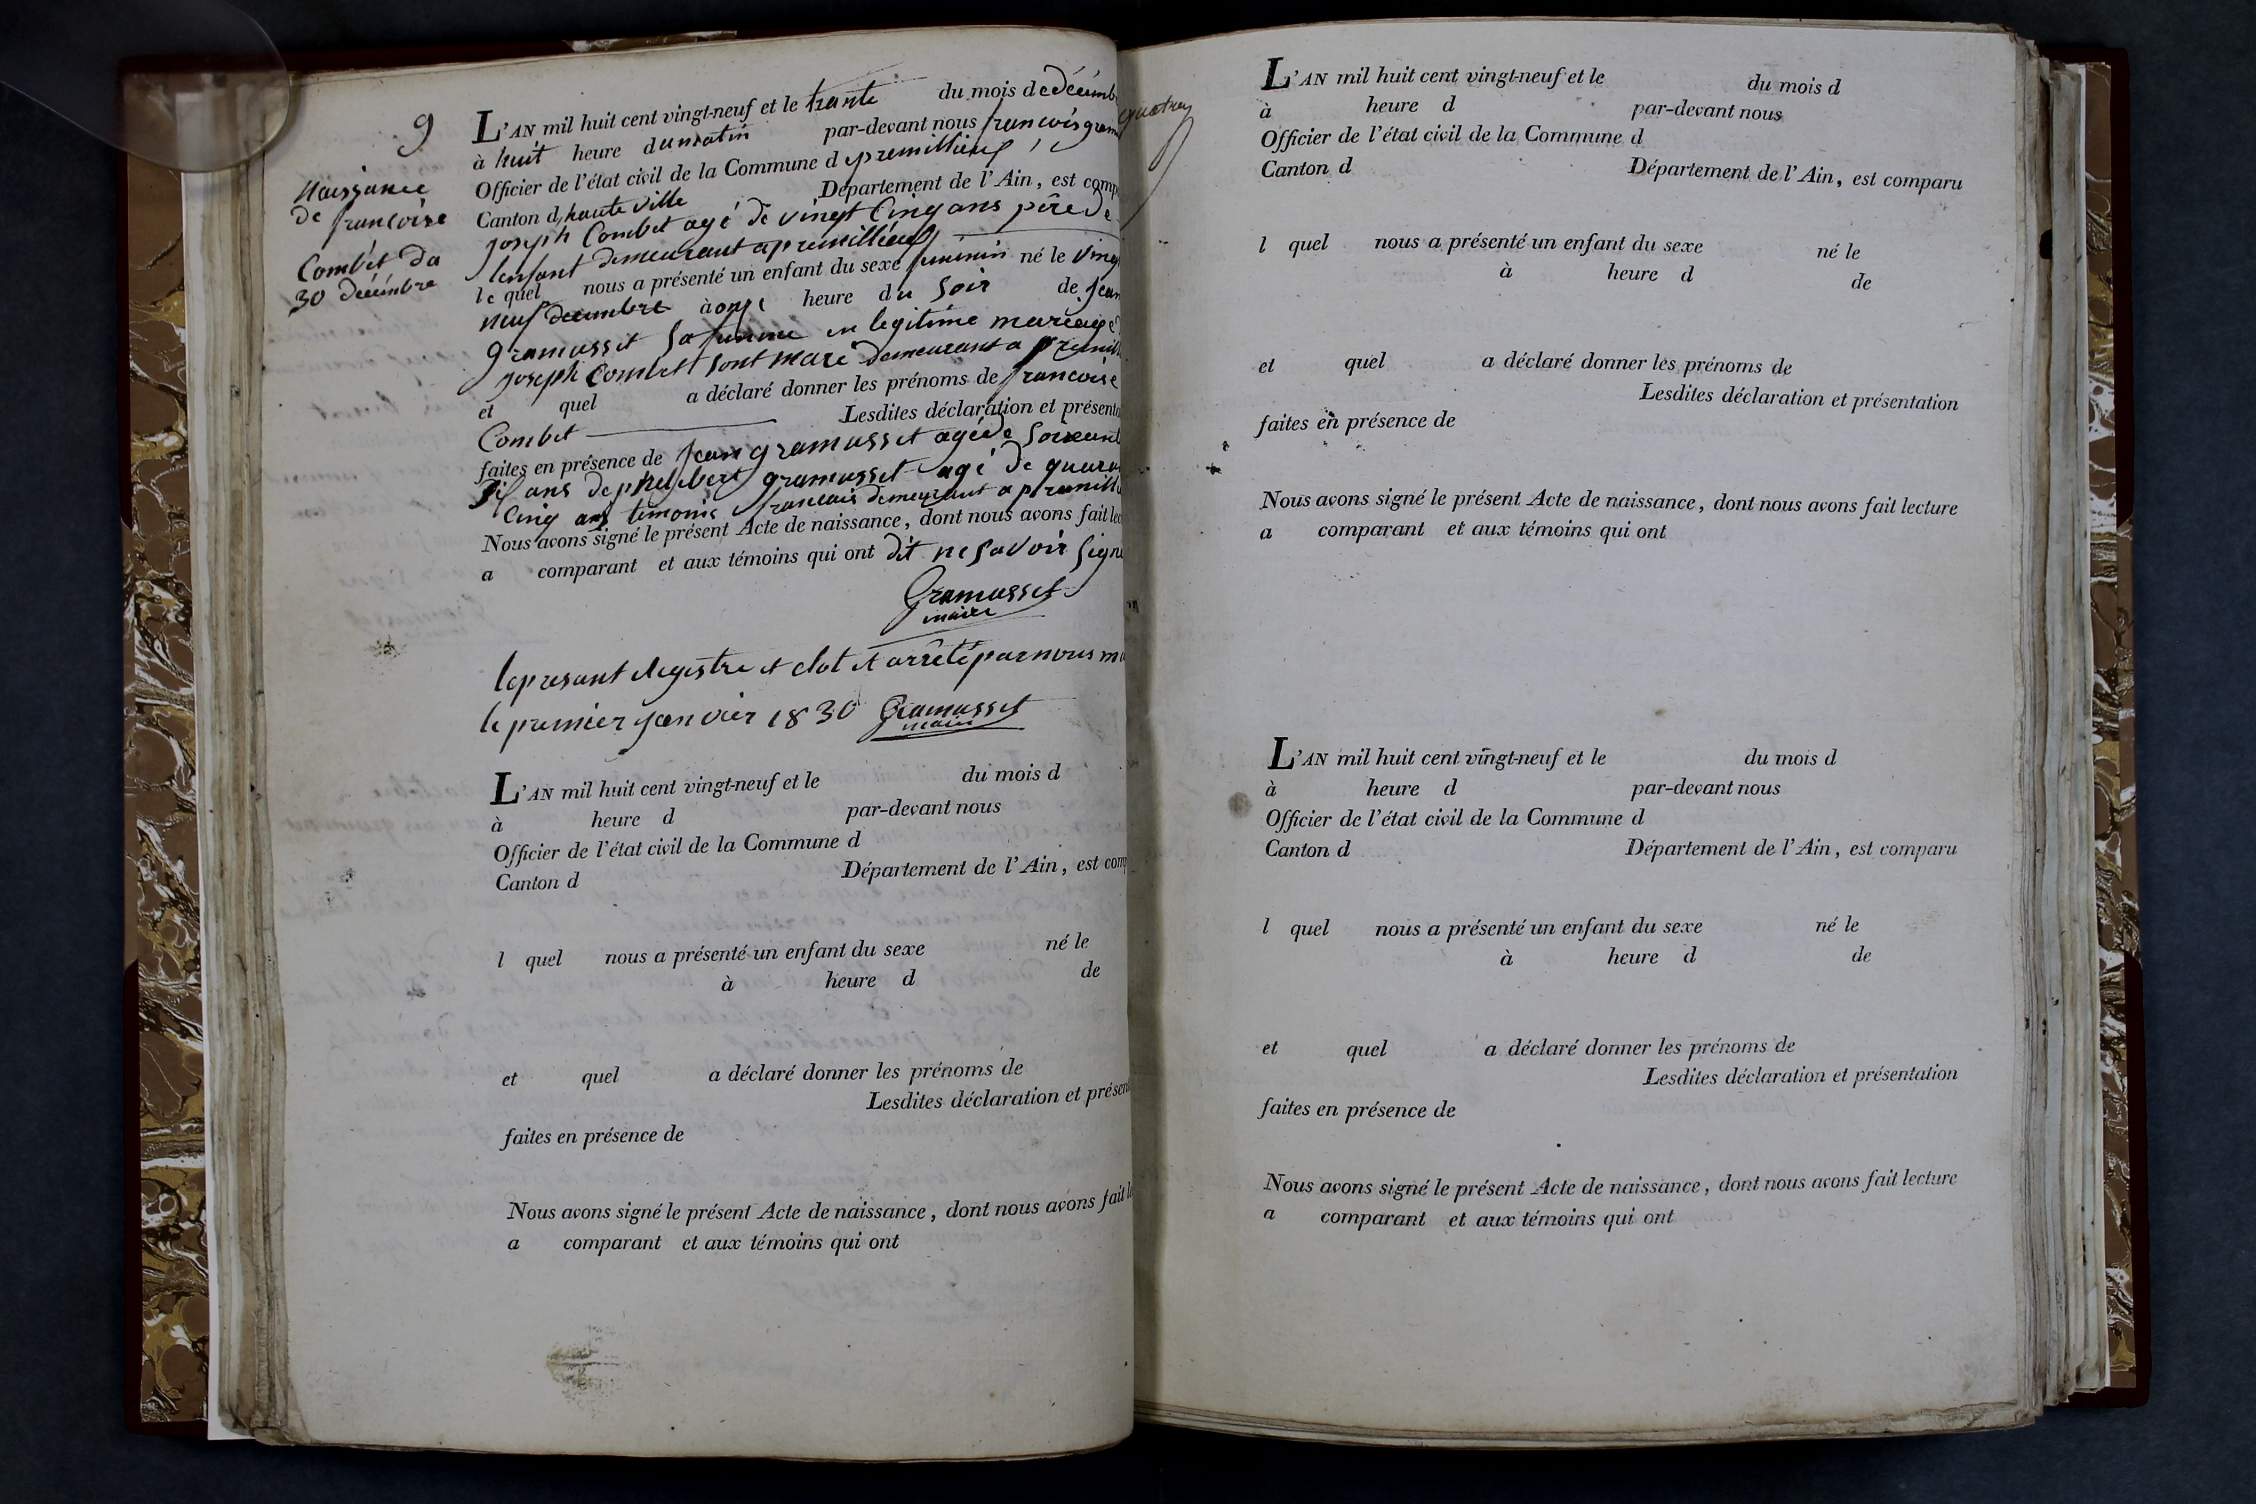 9
Naissance
de francoise
Combet du
30 décémbre
L'AN mil huit cent vingt-neuf et le trante du mois de décémb
à huit heure du matin par-devant nous francois gram
Officier de l'état civil de la Commune d premillieux
Canton d haute ville Département de l'Ain, est comp
joseph Combet agé de vingt Cinq ans père de
lenfant demeurant a premillieux
le quel nous a présenté un enfant du sexe feminin né le ving
neuf decembre à onze heure du Soir de jean
gramusset Sa femme en legitime mariage
joseph Combet Sont mari demeurant a premill
et quel a déclaré donner les prénoms de francoise
Combet Lesdites déclaration et présenta
faites en présence de jean gramusset agé de Soixant
ans de philibert gramusset agé de quaran
Cinq ans temoins francais demeurant a premilli
Nous avons signé le présent Acte de naissance, dont nous avons fait lec
a comparant et aux témoins qui ont dit ne Savoir Signe
Gramusset
maire
le presant Registre et clot et arrêté par nous ma
le premier janvier 1830 Gramusset
maire
L'AN mil huit cent vingt-neuf et le du mois d
à heure d par-devant nous
Officier de l'état civil de la Commune d
Canton d Département de l'Ain, est comp
l quel nous a présenté un enfant du sexe né le
à heure d de
et quel a déclaré donner les prénoms de
Lesdites déclaration et présen
faites en présence de
Nous avons signé le présent Acte de naissance, dont nous avons fait le
a comparant et aux témoins qui ont
L'AN mil huit cent vingt-neuf et le du mois d
à heure d par-devant nous
Officier de l'état civil de la Commune d
Canton d Département de l'Ain, est comparu
l quel nous a présenté un enfant du sexe né le
à heure d de
et quel a déclaré donner les prénoms de
Lesdites déclaration et présentation
faites en présence de
Nous avons signé le présent Acte de naissance, dont nous avons fait lecture
a comparant et aux témoins qui ont
L'AN mil huit cent vingt-neuf et le du mois d
à heure d par-devant nous
Officier de l'état civil de la Commune d
Canton d Département de l'Ain, est comparu
l quel nous a présenté un enfant du sexe né le
à heure d de
et quel a déclaré donner les prénoms de
Lesdites déclaration et présentation
faites en présence de
Nous avons signé le présent Acte de naissance, dont nous avons fait lecture
a comparant et aux témoins qui ont